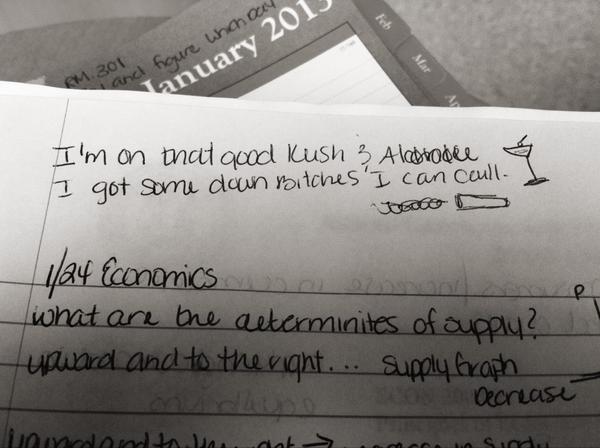 RM. 301
and figure which day
January 2013
Feb
Mar
I'm on that good Kush & Alcohol
I got some down Bitches I can Call.
1/24 Economics
what are the determinites of supply?
P
upward and to the right... supply Graph
Decrease